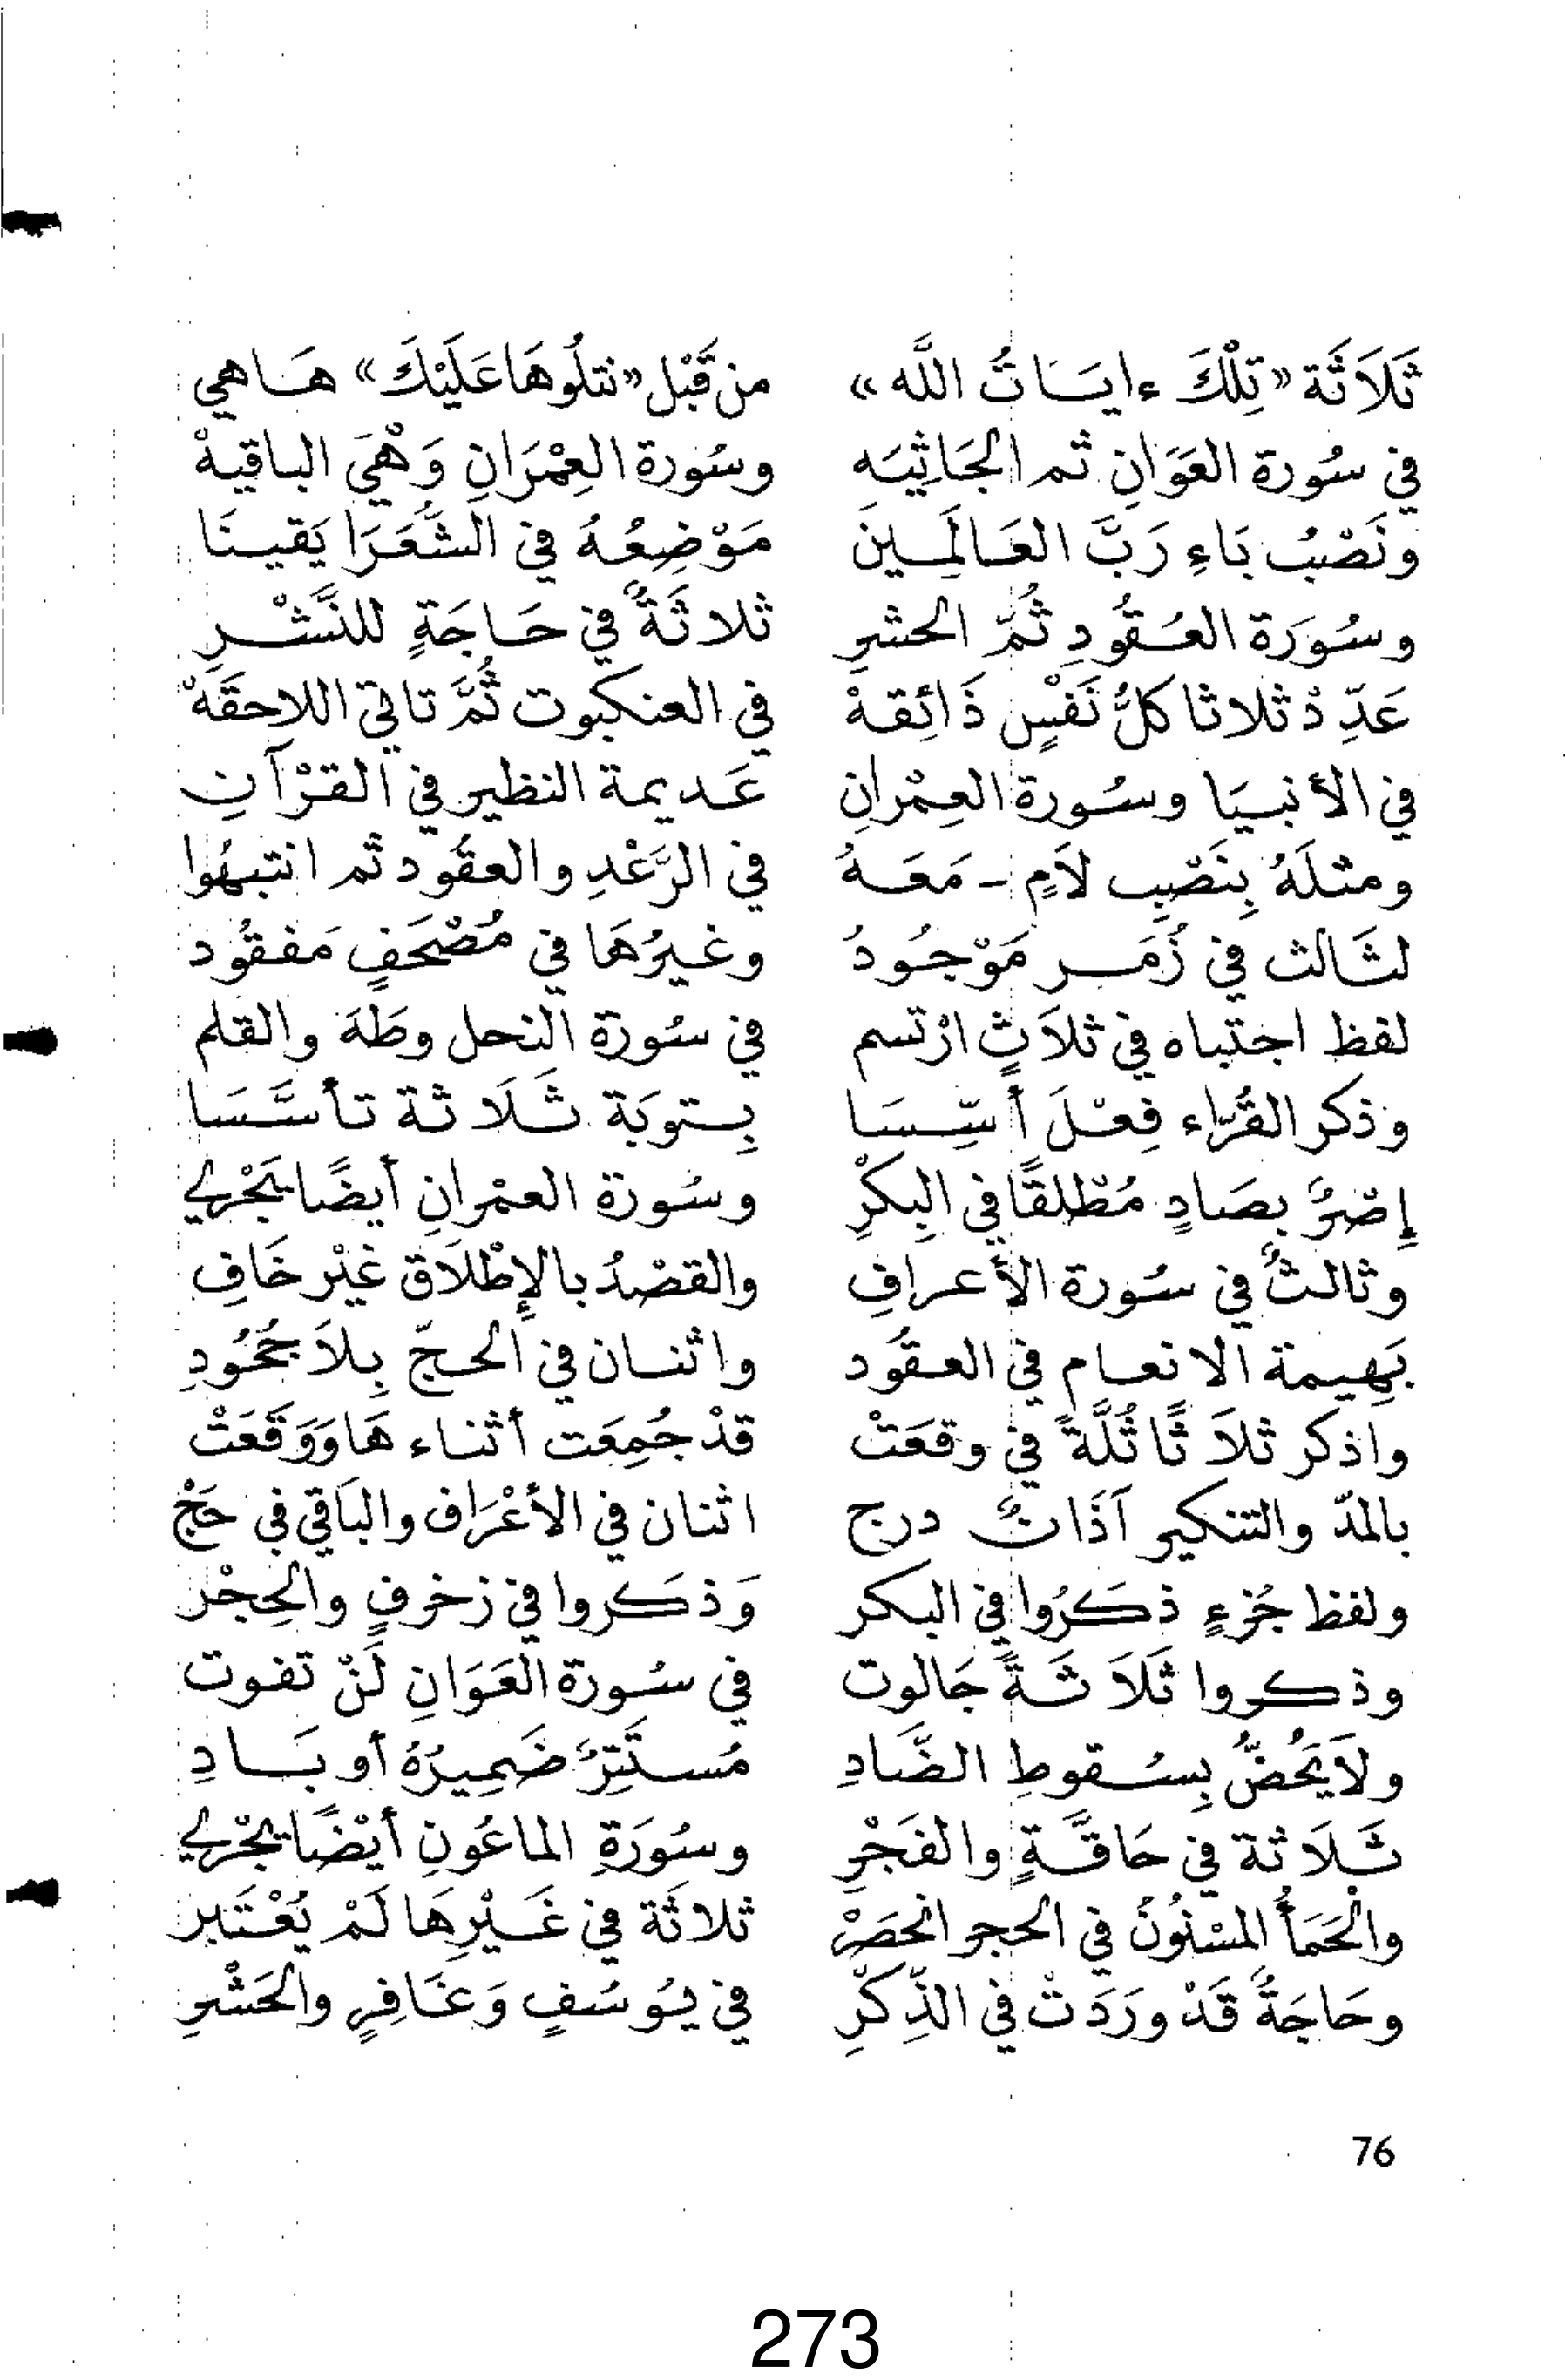 ثَلَاثَة «تِلْكَ ءايَـاتُ اللَّه» من قَبْل «نتلُوهَا عَلَيْكَ» هَـاهي
في سُورة العَوَانِ ثم الجَاثِيَه وسُورة العِمْرَانِ وَهْيَ الباقيهْ
ونَصْبُ بَاءِ رَبَّ العَـالَمِـينَ مَوْضِعُهُ في الشُّعَرَا يَقينَا
وسُورَة العُـقُودِ ثُمَّ الحشرِ ثلاثَةٌ في حَـاجَةٍ للنَّشْـرِ
عَدِّدْ ثلاثا كلُّ نَفْسٍ ذَائِقهْ في العنكبوت ثُمَّ تاتي اللاحِقَهْ
في الأنبـيَا وسُورة العِمْرانِ عَـديمة النظير في القرْآنِ
ومثلَهُ بِنَصْبِ لاَمٍ - مَعَـهُ في الرَّعْدِ والعقُود ثم انتبهُوا
لثَـالث في زُمَـرٍ مَوْجُـودُ وغيرُهَا في مُصْحَفٍ مَفقُود
لفظ اجتباه في ثلاَثٍ ارْتسم في سُورة النحل وطَهَ والقلم
وذكر القُرّاء فِعْـلَ أسِّـسَا بِـتوبَة ثَـلَاثة تأسَّـسَا
إِصْرٌ بصَادٍ مُطْلقًا في البِكْرِ وسُورة العمْرانِ أيضًا يَجْري
وثالثٌ في سُورة الأعرافِ والقصْدُ بالإِطْلَاق غيْر خَافِ
بَهِيمة الانعـام في العقُود واثنـان في الحـجّ بِـلاَ جُحُودِ
واذكر ثلاَثًا ثُلَّةً في وقعَتْ قدْ جُمِعَت أثناء هَا وَوَقَعَتْ
بالمدّ والتنكير آذَانٌ درج اثنان في الأعْرَاف والبَاقي في حَجّ
ولفظ جُزءٍ ذكَرُوا في البكر وَذكَروا في زخرفٍ والحِجْر
وذكروا ثَلاَثَـةً جَالوت في سُورة العَوَانِ لَنْ تفوت
ولاَ يَحُضُّ بِسُـقوطِ الضَّادِ مُستَتِرٌ ضَمِيرُهُ أو بَـادِ
ثَـلَاثة في حَاقَّـةٍ والفَجْرِ وسُورَةِ الماعُونِ أيْضًا يَجْري
والْحَمَأُ المسْنُونُ في الحجر انحصَرْ ثلاثَة في غَـيْرِهَا لَمْ يُعْتَبر
وحَاجَةً قَدْ ورَدَتْ في الذِّكْرِ في يُوسُفٍ وَغَافِرٍ والحَشْرِ
76
273